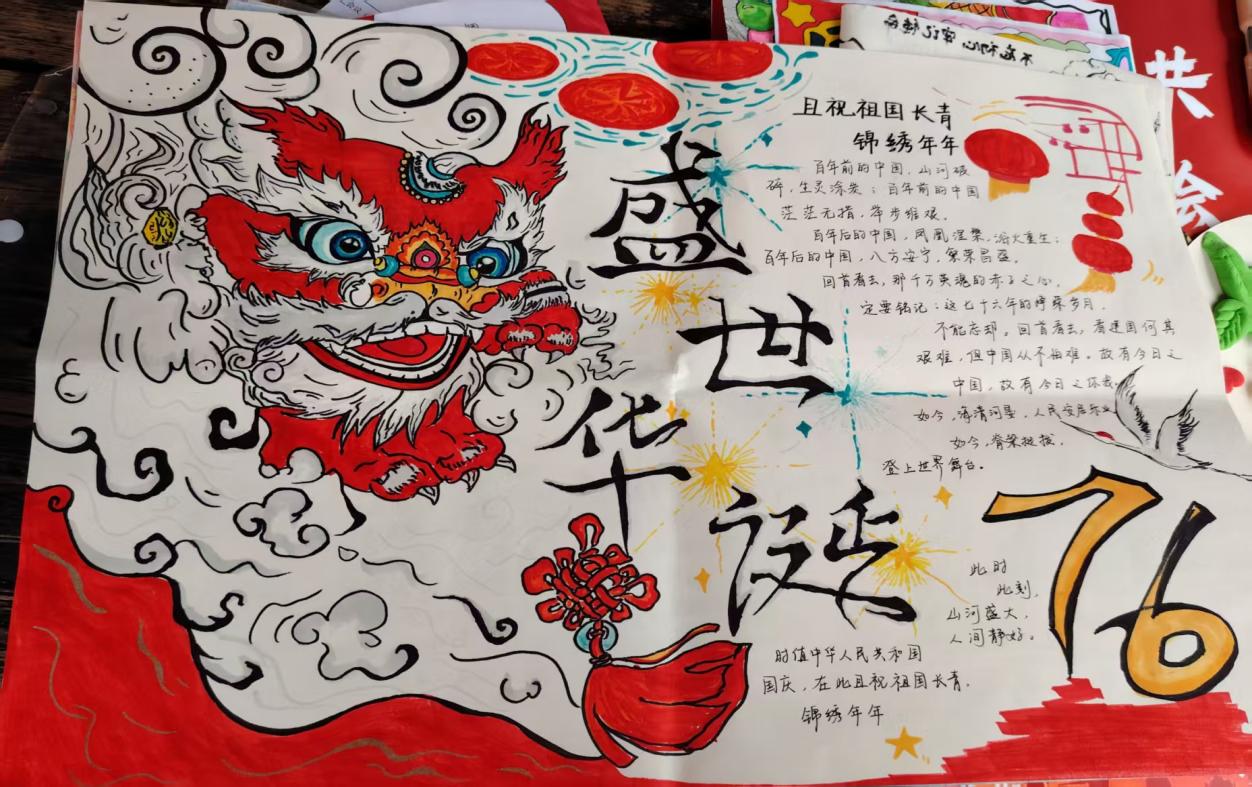 盛
世
华
诞
且祝祖国长青
锦绣年年
百年前的中国，山河破
碎，生灵涂炭；百年前的中国
茫茫无措，举步维艰。
百年后的中国，凤凰涅槃，浴火重生；
百年后的中国，八方安宁，繁荣昌盛。
回首看去，那千万英魂的赤子之心，
定要铭记：这七十六年的峥嵘岁月，
不能忘却。回首看去，看建国何其
艰难，但中国从不怕难。故有今日之
中国，故有今日之你我。
如今，海清河晏，人民安居乐业
如今，脊梁挺拔，
登上世界舞台。
76
此时
此刻，
山河盛大，
人间静好。
时值中华人民共和国
国庆，在此且祝祖国长青，
锦绣年年
不忘初心 牢记使命
共
绘